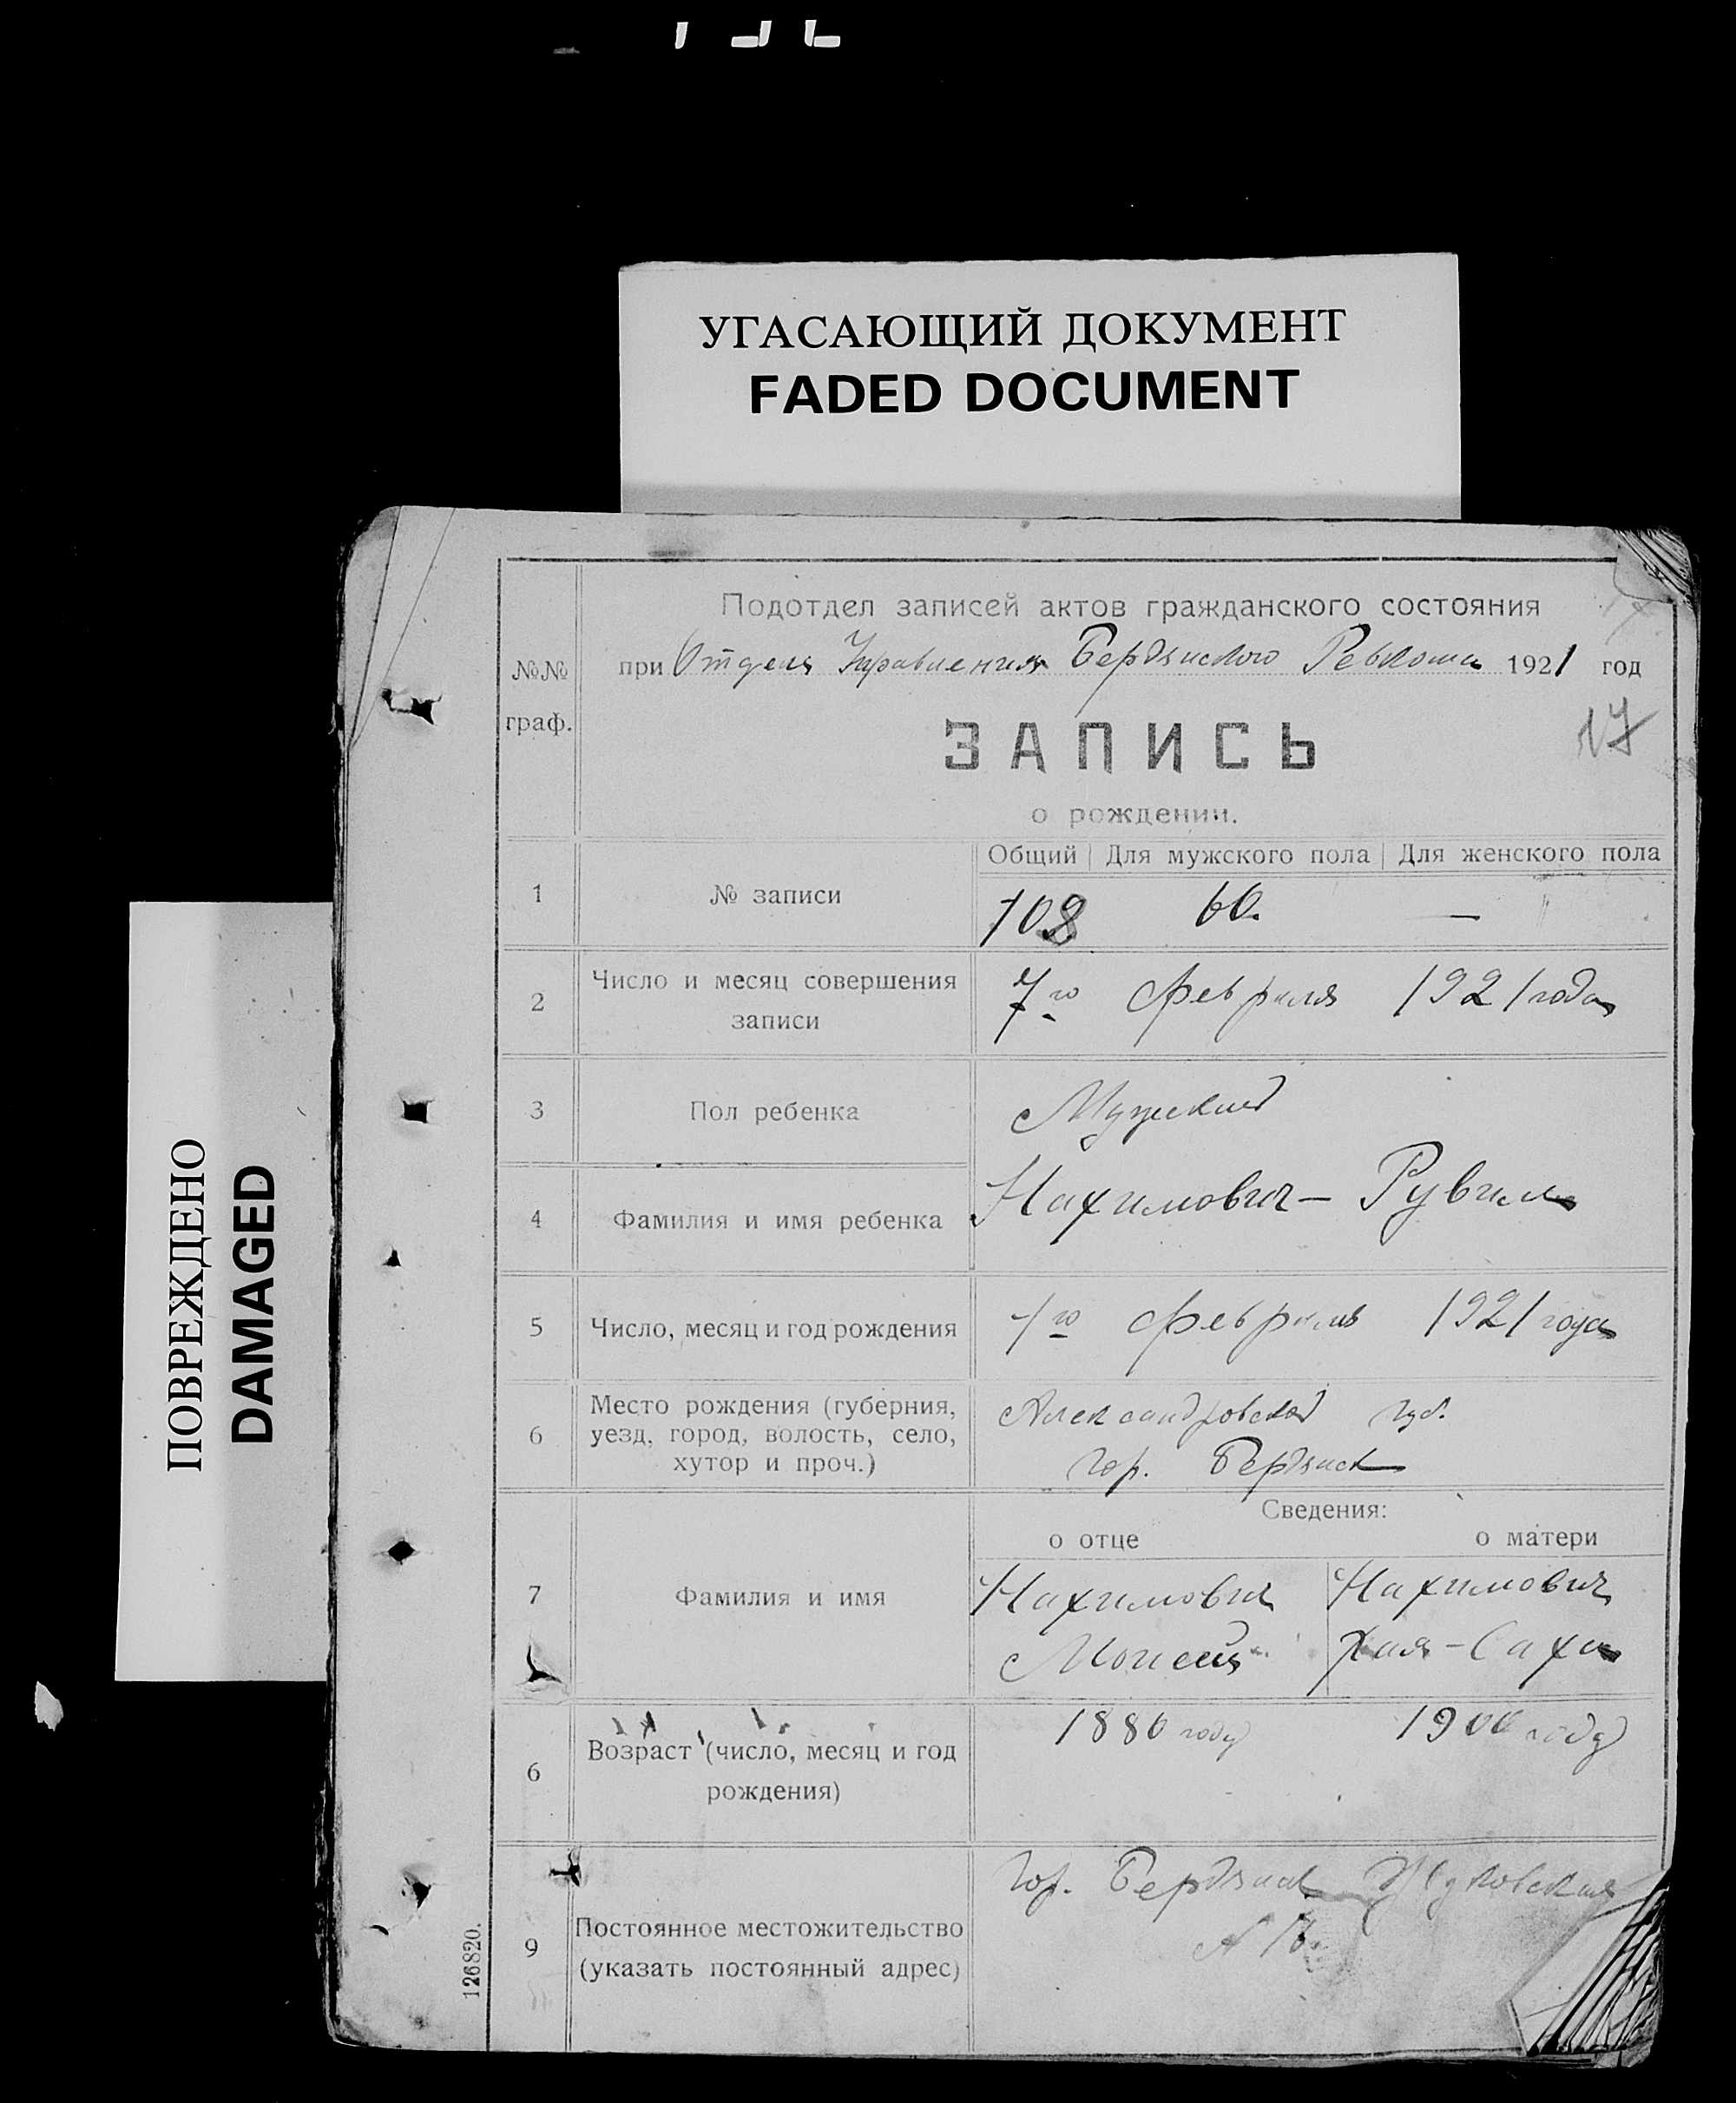 УГАСАЮЩИЙ ДОКУМЕНТ
FADED DOCUMENT
ПОВРЕЖДЕНО
DAMAGED
Подотдел записей актов гражданского состояния
при Отделе Управления Бердянского Ревкома 1921 год
№№ граф.
17
ЗАПИСЬ
о рождении.
Общий | Для мужского пола | Для женского пола
1 № записи 108 60. —
2 Число и месяц совершения записи 7го февраля 1921 года
3 Пол ребенка Мужский
4 Фамилия и имя ребенка Нахимович — Рувим
5 Число, месяц и год рождения го февраля 1921 года
6 Место рождения (губерния, Александровской губ.
уезд, город, волость, село, гор. Бердянск
хутор и проч.)
Сведения:
о отце о матери
7 Фамилия и имя Нахимович Нахимович
Моисей Хая-
6 Возраст (число, месяц и год рождения) 1880 году 1900 году
9 Постоянное местожительство Гор. Бердянск
(указать постоянный адрес)
126820.